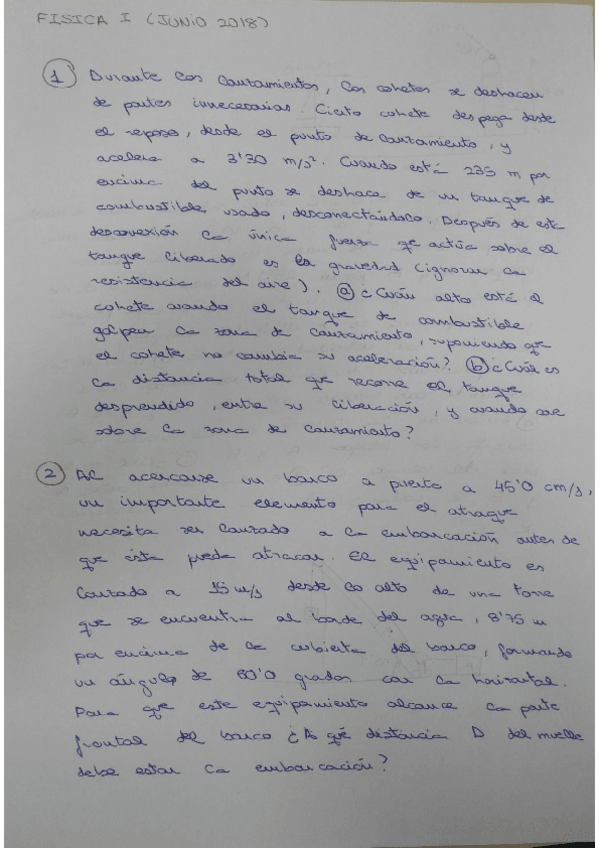 FISICA I (JUNIO 2018)
1 Durante los lanzamientos, los cohetes se deshacen
de partes innecesarias. Cierto cohete despega desde
el reposo, desde el punto de lanzamiento, y
acelera a 3'30 m/s². Cuando está 235 m por
encima del punto se deshace de un tanque de
combustible usado, desconectándolo. Después de esta
desconexión la única fuerza que actúa sobre el
tanque liberado es la gravedad (ignorar la
resistencia del aire). a) ¿Cuán alto está el
cohete cuando el tanque de combustible
golpea la zona de lanzamiento, suponiendo que
el cohete no cambia su aceleración? b) ¿Cuál es
la distancia total que recorre el tanque
desprendido, entre su liberación, y cuando cae
sobre la zona de lanzamiento?
2 Al acercarse un barco a puerto a 45'0 cm/s,
un importante elemento para el atraque
necesita ser lanzado a la embarcación antes de
que ésta pueda atracar. El equipamiento es
lanzado a 15 m/s desde lo alto de una torre
que se encuentra al borde del agua, 8'75 m
por encima de la cubierta del barco, formando
un ángulo de 60'0 grados con la horizontal.
Para que este equipamiento alcance la parte
frontal del barco ¿A qué distancia D del muelle
debe estar la embarcación?